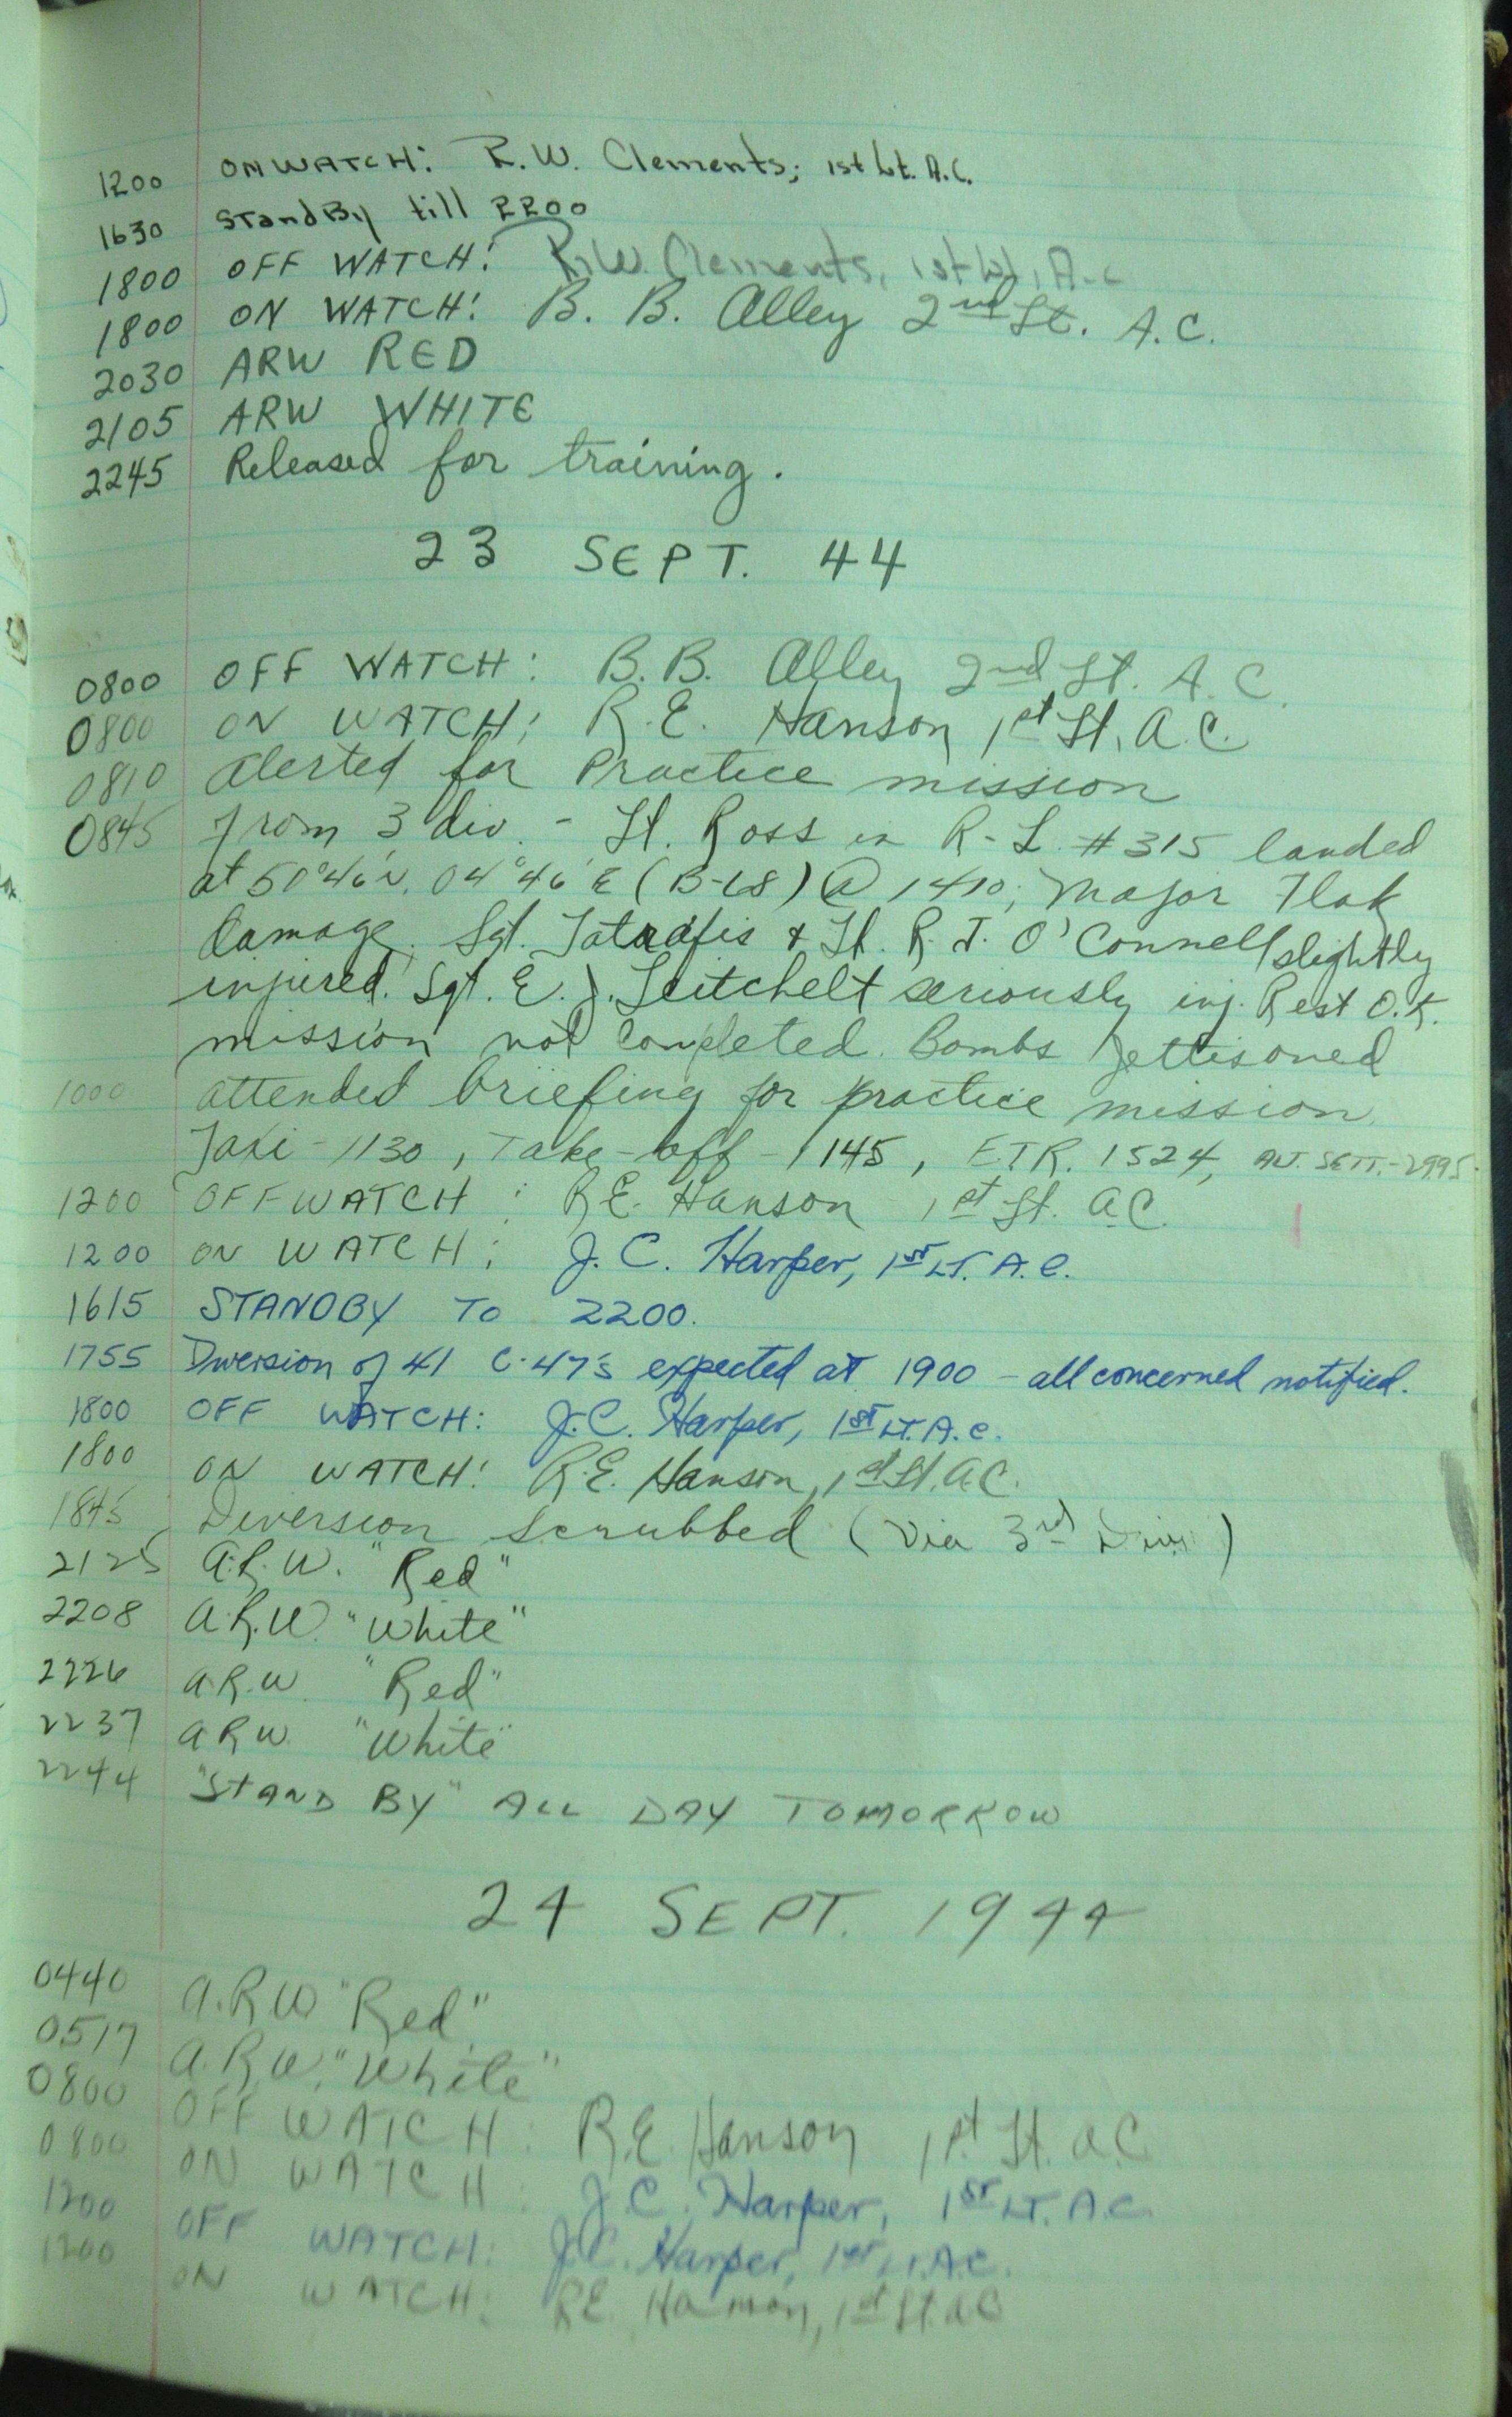 1200 ON WATCH: R.W. Clements; 1st Lt. A.C.
1630 StandBy till 2200
1800 OFF WATCH: R.W. Clements, 1st Lt, A.C
1800 ON WATCH: B. B. Alley 2nd Lt. A.C.
2030 ARW RED
2105 ARW WHITE
2245 Released for training.
23 SEPT. 44
0800 OFF WATCH: B.B. Alley 2nd Lt. A.C.
0800 ON WATCH: R.E. Hanson 1st Lt, A.C.
0810 Alerted for Practice mission
0845 From 3 div. - Lt. Ross in R-L #315 landed
at 50°46'N. 04°46'E (B-68) @ 1410; Major Flak
Damage. Sgt. & Lt. R. J. O'Connell slightly
injured. Sgt. E. J. Leitchelt seriously inj. Rest O.K.
mission not completed. Bombs Jettisoned
1000 attended briefing for practice mission.
Taxi - 1130, Take-off - 1145, E.T.R. 1524, ALT. SETT. - 2995.
1200 OFF WATCH : R.E. Hanson 1st Lt. A.C.
1200 ON WATCH: J.C. Harper, 1ST LT. A.C.
1615 STANDBY TO 2200.
1755 Diversion of 41 C-47's expected at 1900 - all concerned notified.
1800 OFF WATCH: J.C. Harper, 1ST LT. A.C.
1800 ON WATCH: R.E. Hanson, 1st Lt. A.C.
1845 Diversion Scrubbed (Via 3rd Div.)
2125 A.R.W. "Red"
2208 A.R.W. "White"
2226 A.R.W. "Red"
2237 A.R.W. "White"
2244 "STAND BY" ALL DAY TOMORROW
24 SEPT. 1944
0440 A.R.W "Red"
0517 A.R.W. "White"
0800 OFF WATCH: R.E. Hanson 1st Lt. A.C.
0800 ON WATCH: J.C. Harper, 1ST LT. A.C.
1200 OFF WATCH: J.C. Harper, 1ST LT. A.C.
1200 ON WATCH: R.E. Hanson, 1st Lt. A.C